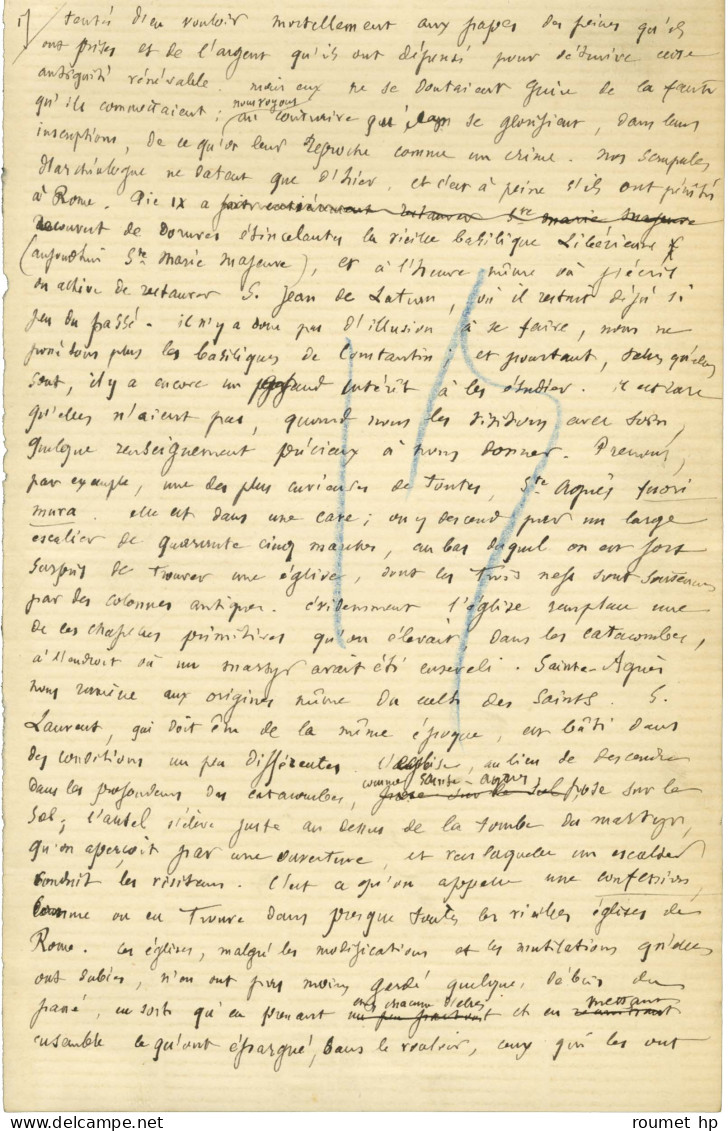 tentés d'en vouloir mortellement aux papes des peines qu'ils
ont prises et de l'argent qu'ils ont dépensé pour détruire cette
antiquité vénérable. mais eux ne se doutaient guère de la faute
qu'ils commettaient; nous voyons
au contraire qu'ils se glorifient, dans leurs
inscriptions, de ce qu'on leur reproche comme un crime. Nos scrupules
d'archéologue ne datent que d'hier, et c'est à peine s'ils ont pénétré
à Rome. Pie IX a fait entièrement restaurer Ste marie majeure
recouvert de dorures étincelantes la vieille basilique Libérienne
(aujourd'hui Ste Marie Majeure), et à l'heure même où j'écris
on achève de restaurer S. Jean de Latran, où il restait déjà si
peu du passé. il n'y a donc pas d'illusion à se faire, nous ne
possédons plus les basiliques de Constantin; et pourtant, telles qu'elles
sont, il y a encore un grand intérêt à les étudier. il est rare
qu'elles n'aient pas, quand nous les visitons avec soin,
quelque renseignement précieux à nous donner. Prenons,
par exemple, une des plus curieuses de toutes, Ste Agnès fuori
mura. elle est dans une cave; on y descend par un large
escalier de quarante cinq marches, au bas duquel on est fort
surpris de trouver une église, dont les trois nefs sont soutenues
par des colonnes antiques. évidemment l'église remplace une
de ces chapelles primitives qu'on élevait, dans les catacombes,
à l'endroit où un martyr avait été enseveli. Sainte-Agnès
nous ramène aux origines même du culte des Saints. S.
Laurent, qui doit être de la même époque, est bâti dans
des conditions un peu différentes. L'église, au lieu de descendre
dans les profondeurs des catacombes, comme Sainte-Agnès, pose sur le
sol; l'autel s'élève juste au dessus de la tombe du martyr,
qu'on aperçoit par une ouverture, et vers laquelle un escalier
conduit les visiteurs. C'est ce qu'on appelle une confession,
comme on en trouve dans presque toutes les vieilles églises de
Rome. Ces églises, malgré les modifications et les mutilations qu'elles
ont subies, n'en ont pas moins gardé quelque débris du
passé, en sorte qu'en prenant chez chacune d'elles et en mettant
ensemble ce qu'ont épargné, sans le vouloir, ceux qui les ont
© roumet hp